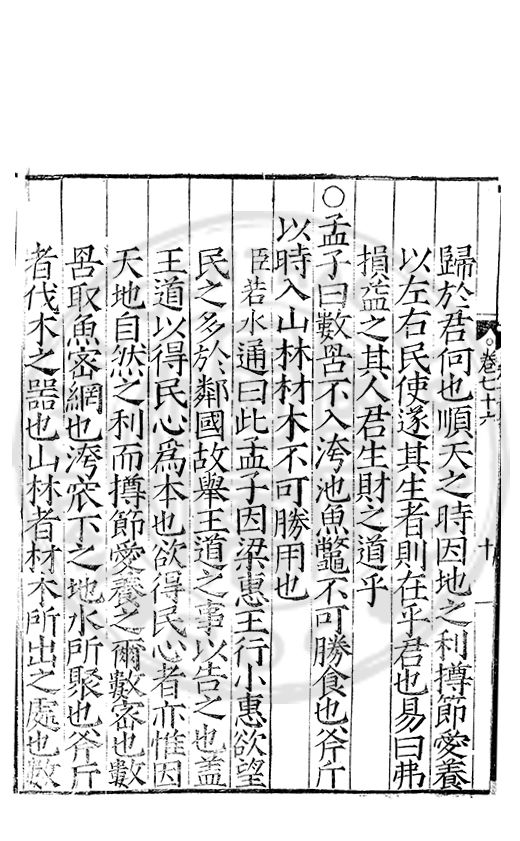 卷七十六
十
歸於君何也順天之時因地之利撙節愛養
以左右民使遂其生者則在乎君也易曰弗
損益之其人君生財之道乎
○孟子曰數罟不入洿池魚鼈不可勝食也斧斤
以時入山林材木不可勝用也
臣若水通曰此孟子因梁惠王行小惠欲望
民之多於鄰國故舉王道之事以告之也盖
王道以得民心爲本也欲得民心者亦惟因
天地自然之利而撙節愛養之爾數密也數
罟取魚密網也洿窊下之地水所聚也斧斤
者伐木之器也山林者材木所出之處也數